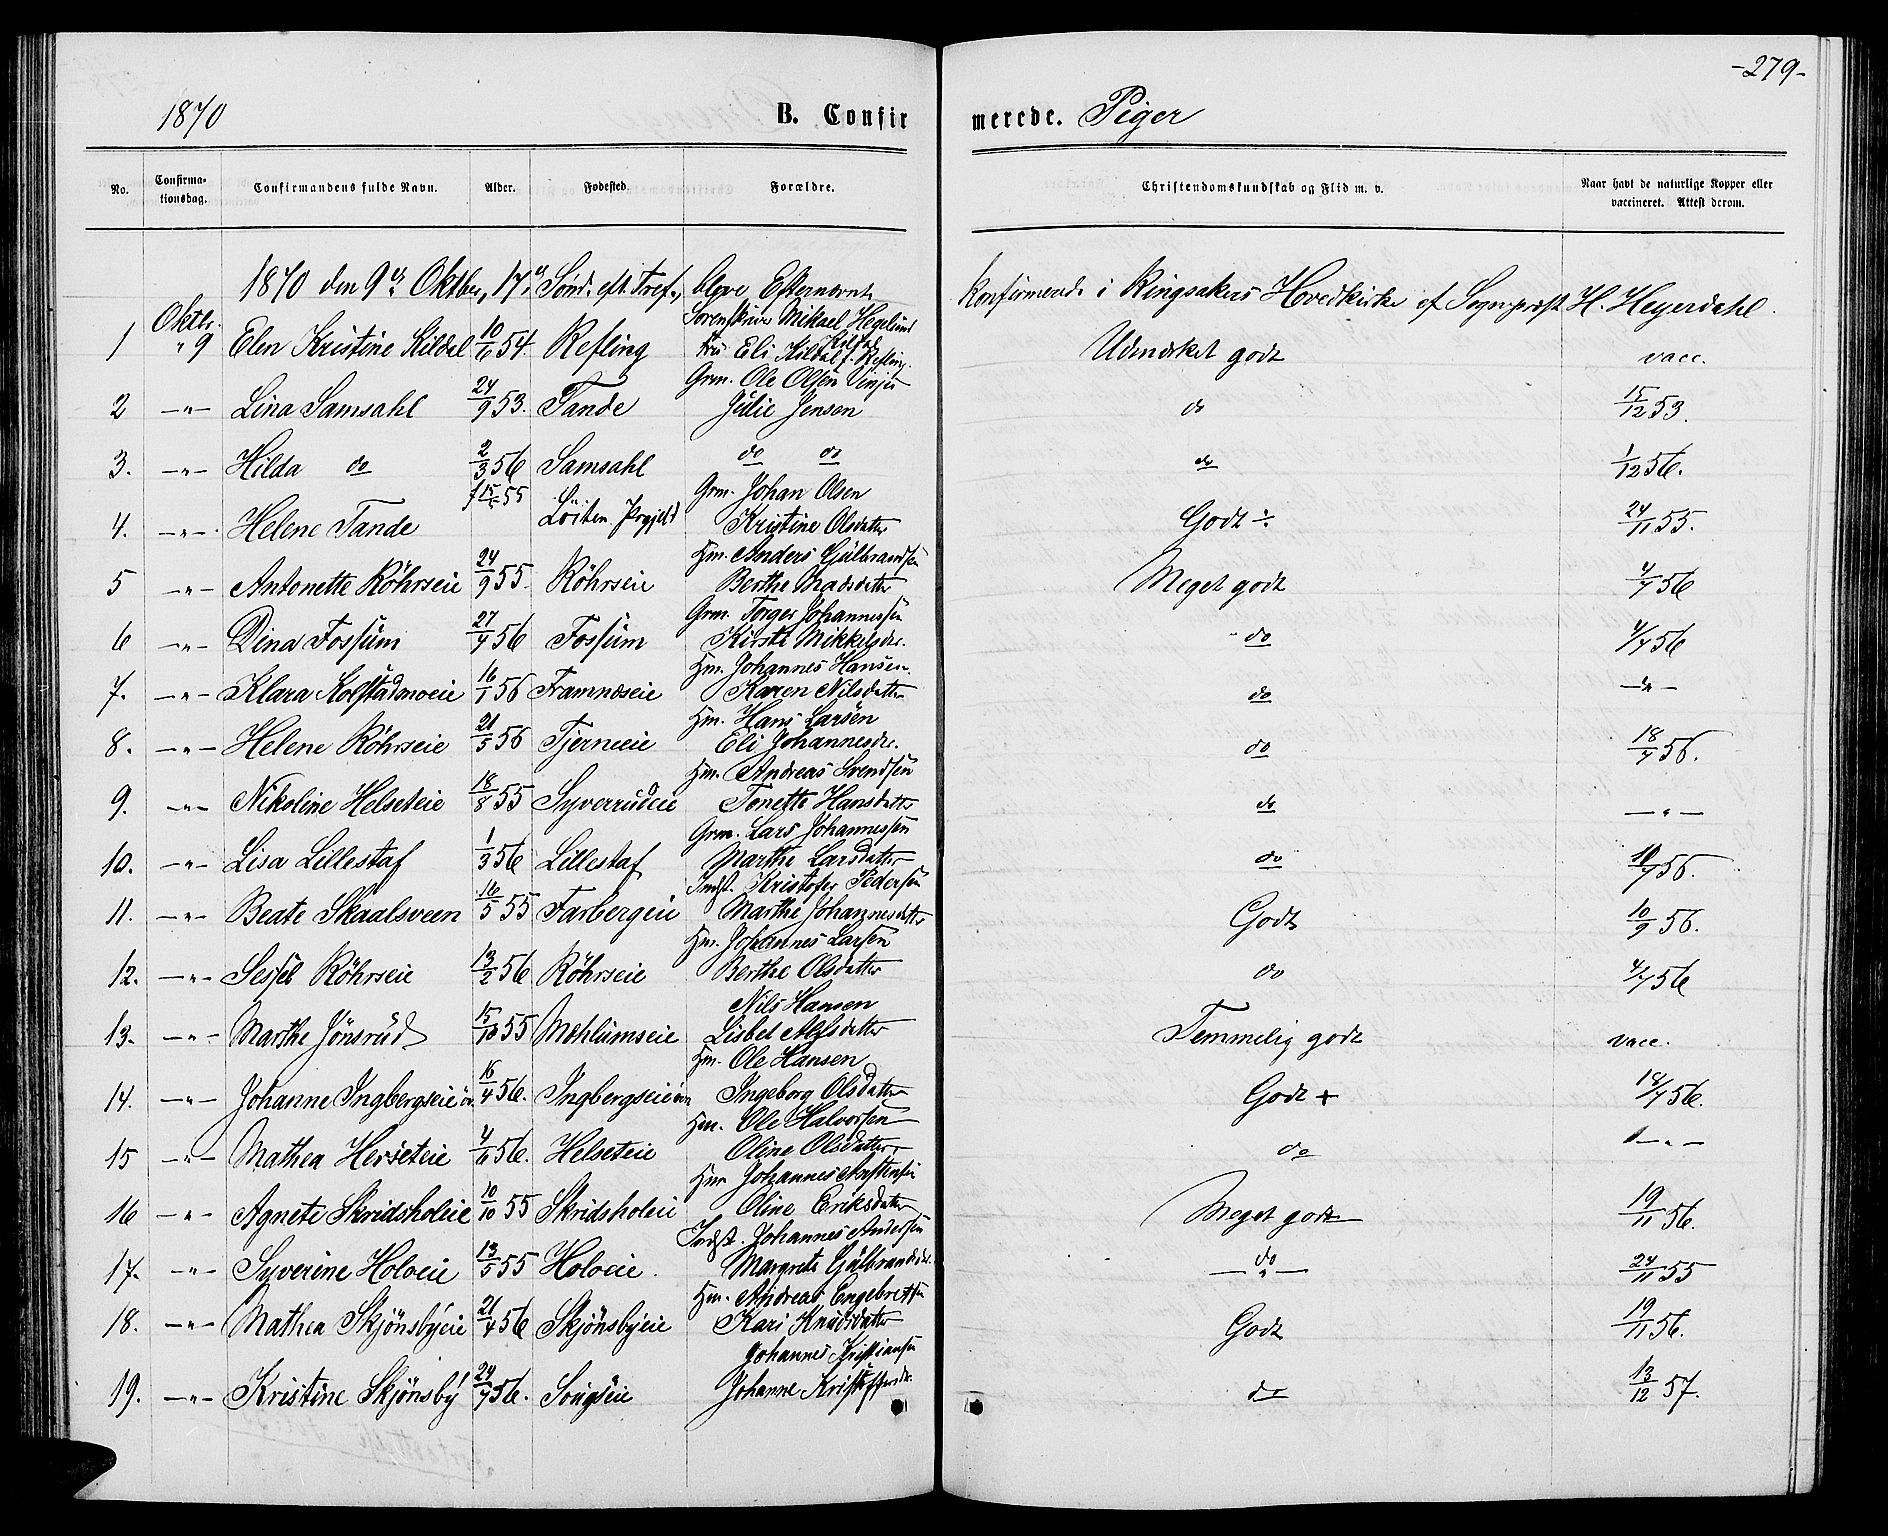 -279-
1870 B. Confirmerede. Piger
No. Confirmationsdag. Confirmandens fulde Navn. Alder. Fødested. Forældre. Christendomskundskab og Flid m. v. Naar havt de naturlige Kopper eller vaccineret. Attest derom.
1870 den 9de Oktbr, 17de Sønd. eft. Tref., bleve Efternævnte konfirmerede i Ringsakers Hovedkirke af Sognepræst H. Heyerdahl.
Oktbr. Sorenskriver Mikael Hegelund Kildal
1 " 9 Elen Kristine Kildal 10/6 54. Refling Fru Eli Kildal f. Refling. Udmærket godt vacc.
Grm. Ole Olsen Vinju
2 -"- Lina Samsahl 24/9 53. Tande Julie Jensen do 15/12 53.
3. -"- Hilda do 2/3 56 Samsahl do do do 1/12 56.
Grm. Johan Olsen
4. -"- Helene Tande 15/5 55 Löiten Prgjeld Kristine Olsdatter Godt ÷ 24/11 55.
Hm. Anders Gulbrandsen
5 -"- Antonette Röhrseie 24/9 55. Röhrseie Berthe Madsdatter Meget godt 4/7 56
Grm. Torger Johannessen
6 -"- Dina Fossum 27/4 56 Fossum Kirsti Mikkelsdr. do 4/7 56
Hm. Johannes Hansen
7. -"- Klara Kolstadmoeie 16/1 56 Framnæseie Karen Nilsdatter do -"-
Hm. Hans Larsen
8. -"- Helene Röhrseie 21/5 56 Tjerneeie Eli Johannesdr. do 18/7 56.
Hm. Andreas Svendsen
9. -"- Nikoline Helseteie 18/8 55 Syverrudeie Tonette Hansdatter do -"-
Grm. Lars Johannessen
10. -"- Lisa Lillestaf 1/3 56 Lillestaf Marthe Larsdatter do 18/7 56.
Indst. Kristofer Pedersen
11. -"- Beate Skaalsveen 16/5 55 Farbergeie Marthe Johannesdatter Godt 10/9 56.
Hm. Johannes Larsen
12. -"- Sessel Röhrseie 13/2 56 Röhrseie Berthe Olsdatter do 4/7 56
Nils Hansen
13. -"- Marthe Jönsrud 15/10 55 Mæhlumseie Lisbet Alfsdatter Temmelig godt vacc.
Hm. Ole Hansen
14. -"- Johanne Ingbergseie öv. 16/4 56. Ingbergseie öv Ingeborg Olsdatter Godt + 18/7 56.
Hm. Ole Halvorsen
15 -"- Mathea Herseteie 4/6 56. Helseteie Oline Olsdatter do -"-
Hm. Johannes Arstensen
16 -"- Agnete Skridsholeie 10/10 55 Skridsholeie Oline Eriksdatter Meget godt 19/11 56.
Indst. Johannes Andersen
17. -"- Syverine Holoeie 13/5 55 Holoeie. Margrete Gulbrandsdr. do 24/11 55
Hm. Andreas Engebretsen
18. -"- Mathea Skjönsbyeie 21/4 56 Skjönsbyeie Kari Knudsdatter Godt 19/11 56.
Johannes Kristiansen
19. -"- Kristine Skjönsby 24/7 56. Songseie Johanne Kristoffersdr. do 13/12 57.